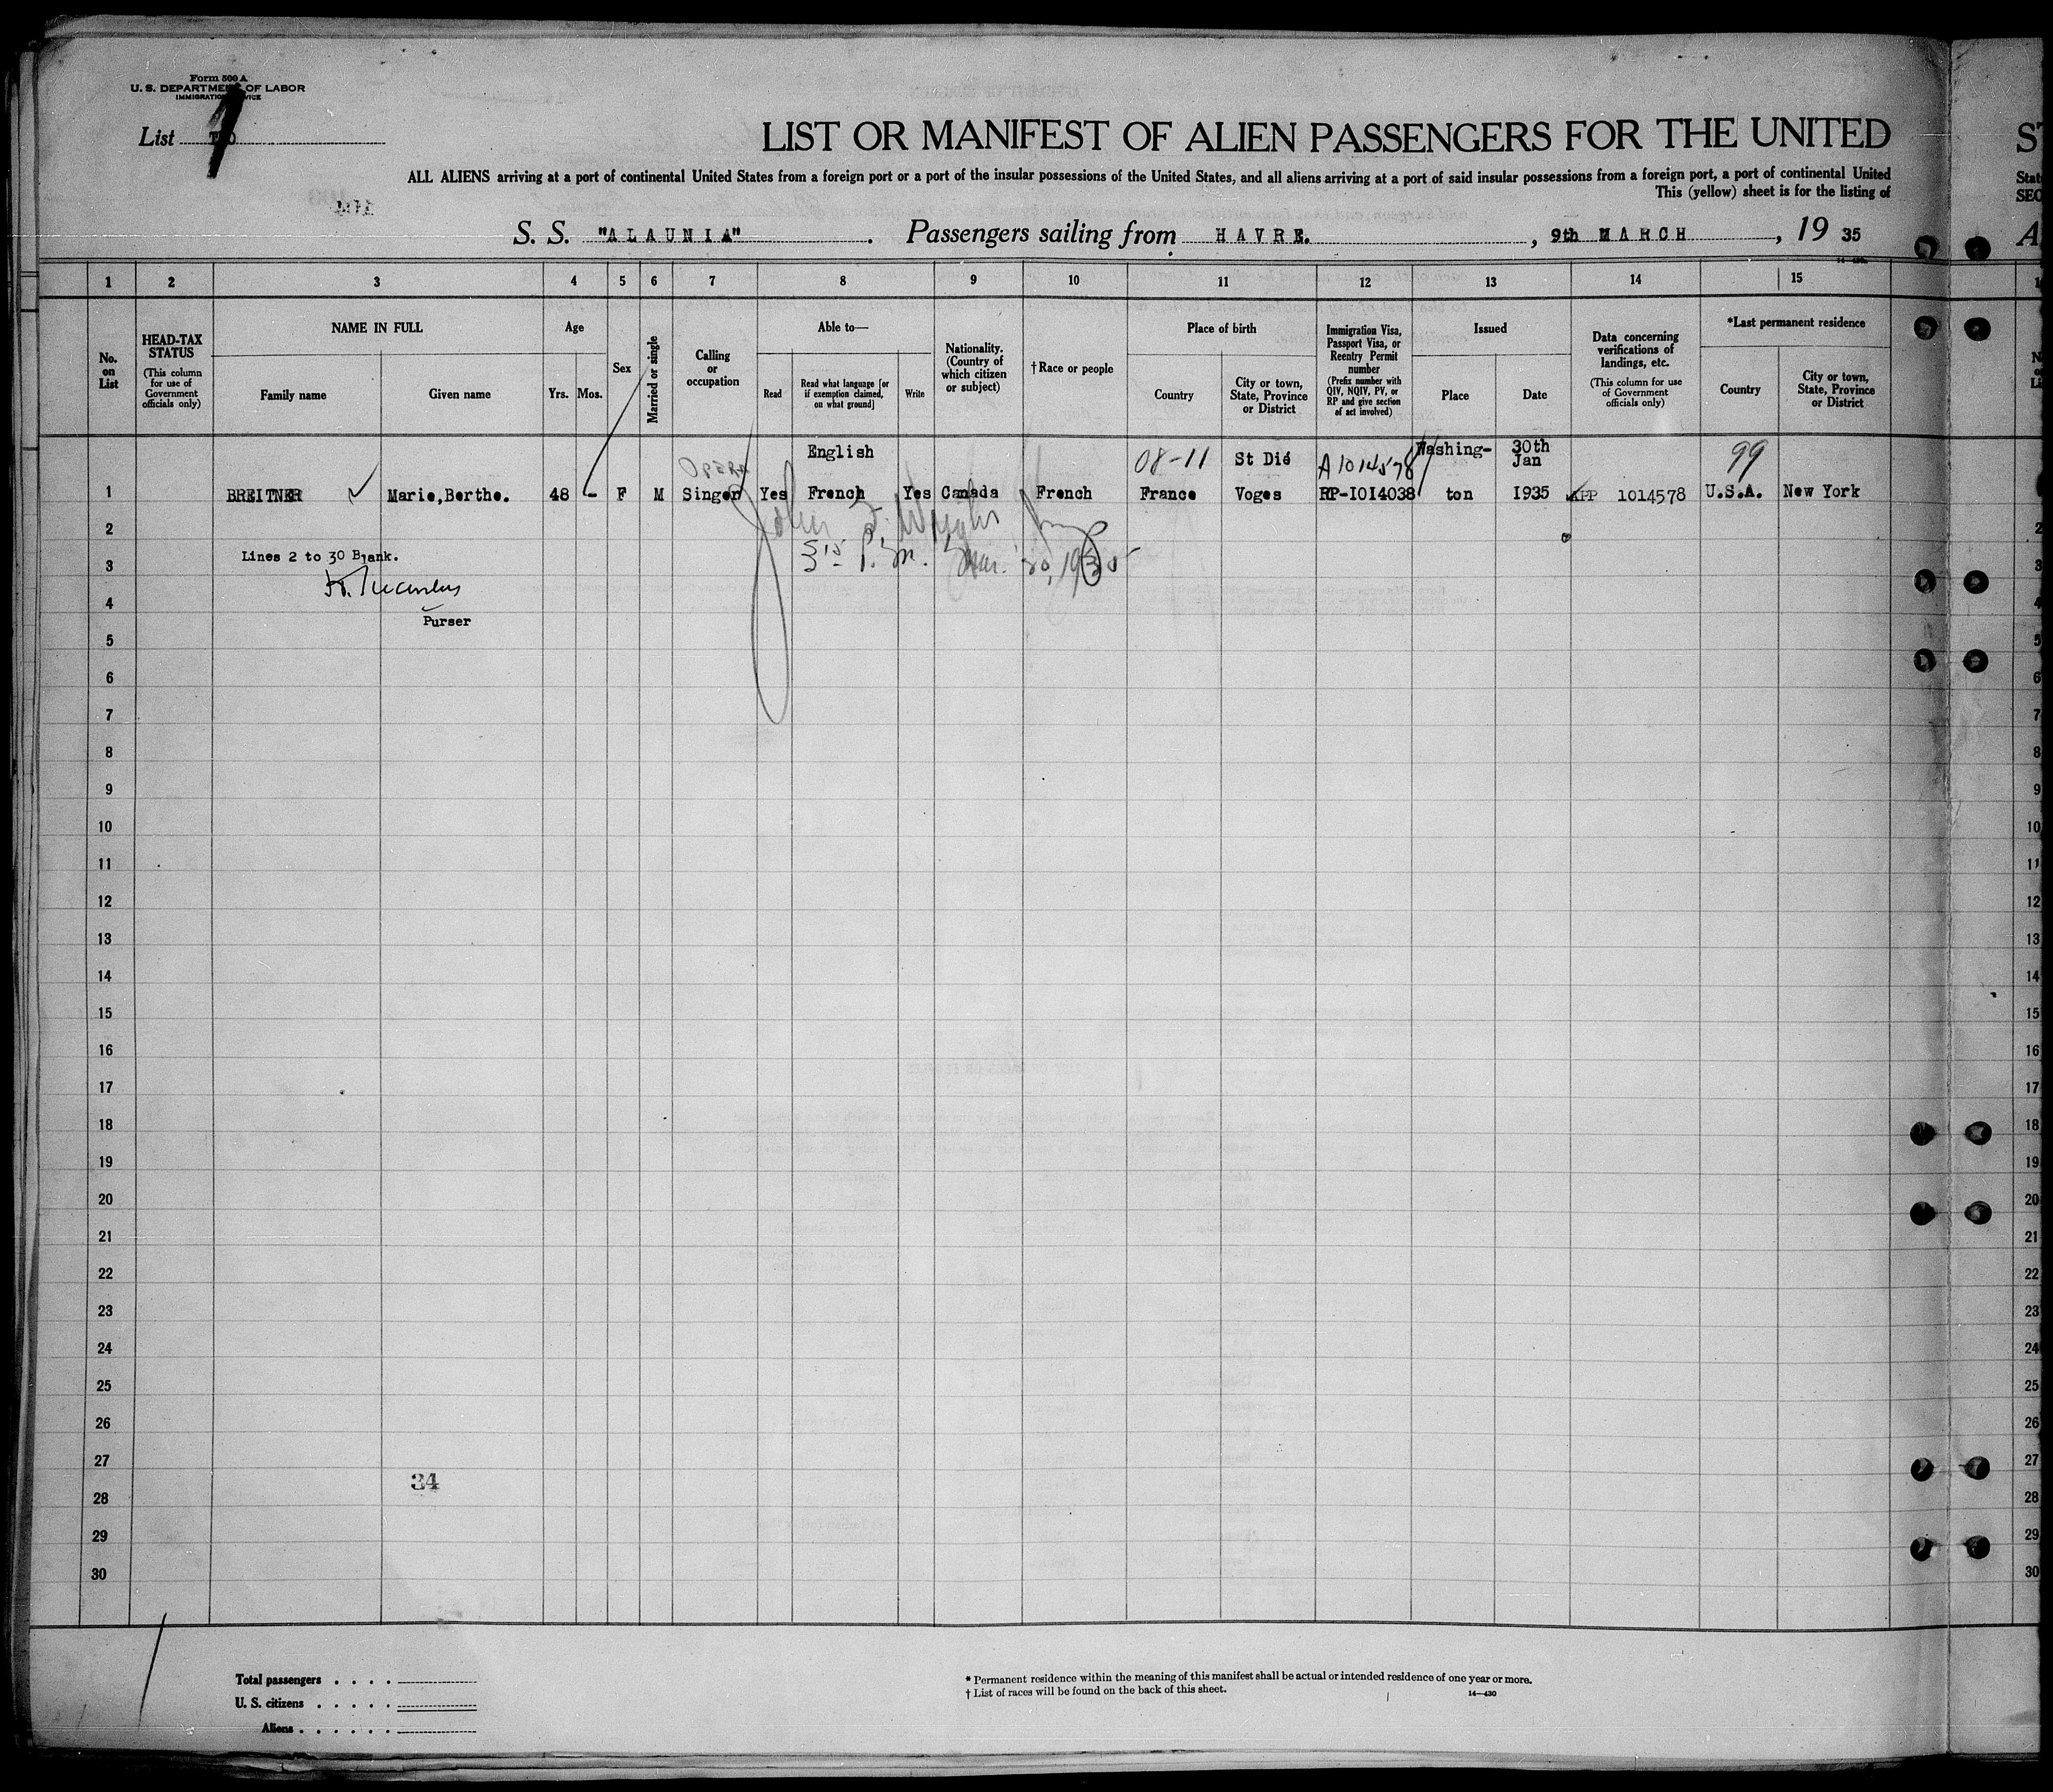 Form 500 A
U. S. DEPARTMENT OF LABOR
IMMIGRATION SERVICE
List
LIST OR MANIFEST OF ALIEN PASSENGERS FOR THE UNITED
ALL ALIENS arriving at a port of continental United States from a foreign port or a port of the insular possessions of the United States, and all aliens arriving at a port of said insular possessions from a foreign port, a port of continental United
This (yellow) sheet is for the listing of
S. S. "ALAUNIA". Passengers sailing from HAVRE. , 9th MARCH , 19 35
1 2 3 4 5 6 7 8 9 10 11 12 13 14 15
No. on List
HEAD-TAX STATUS
(This column for use of Government officials only)
NAME IN FULL
Family name
Given name
Age
Yrs. Mos.
Sex
Married or single
Calling or occupation
Able to—
Read
Read what language [or if exemption claimed, on what ground]
Write
Nationality. (Country of which citizen or subject)
†Race or people
Place of birth
Country
City or town, State, Province or District
Immigration Visa, Passport Visa, or Reentry Permit number
(Prefix number with QIV, NQIV, PV, or RP and give section of act involved)
Issued
Place
Date
Data concerning verifications of landings, etc.
(This column for use of Government officials only)
*Last permanent residence
Country
City or town, State, Province or District
OPERA English 08-11 St Dié A1014578 Washing- 30th Jan 99
1 BREITNER Marie,Berthe. 48 - F M Singer Yes French Yes Canada French France Voges RP-1014038 ton 1935 APP 1014578 U.S.A. New York
2
John
3 Lines 2 to 30 Blank. 5 15 P.M. Mar. 20, 1935
4
Purser
5
6
7
8
9
10
11
12
13
14
15
16
17
18
19
20
21
22
23
24
25
26
27
34
28
29
30
Total passengers . . . .
U. S. citizens . . . . .
Aliens . . . . . .
* Permanent residence within the meaning of this manifest shall be actual or intended residence of one year or more.
† List of races will be found on the back of this sheet.
14—430